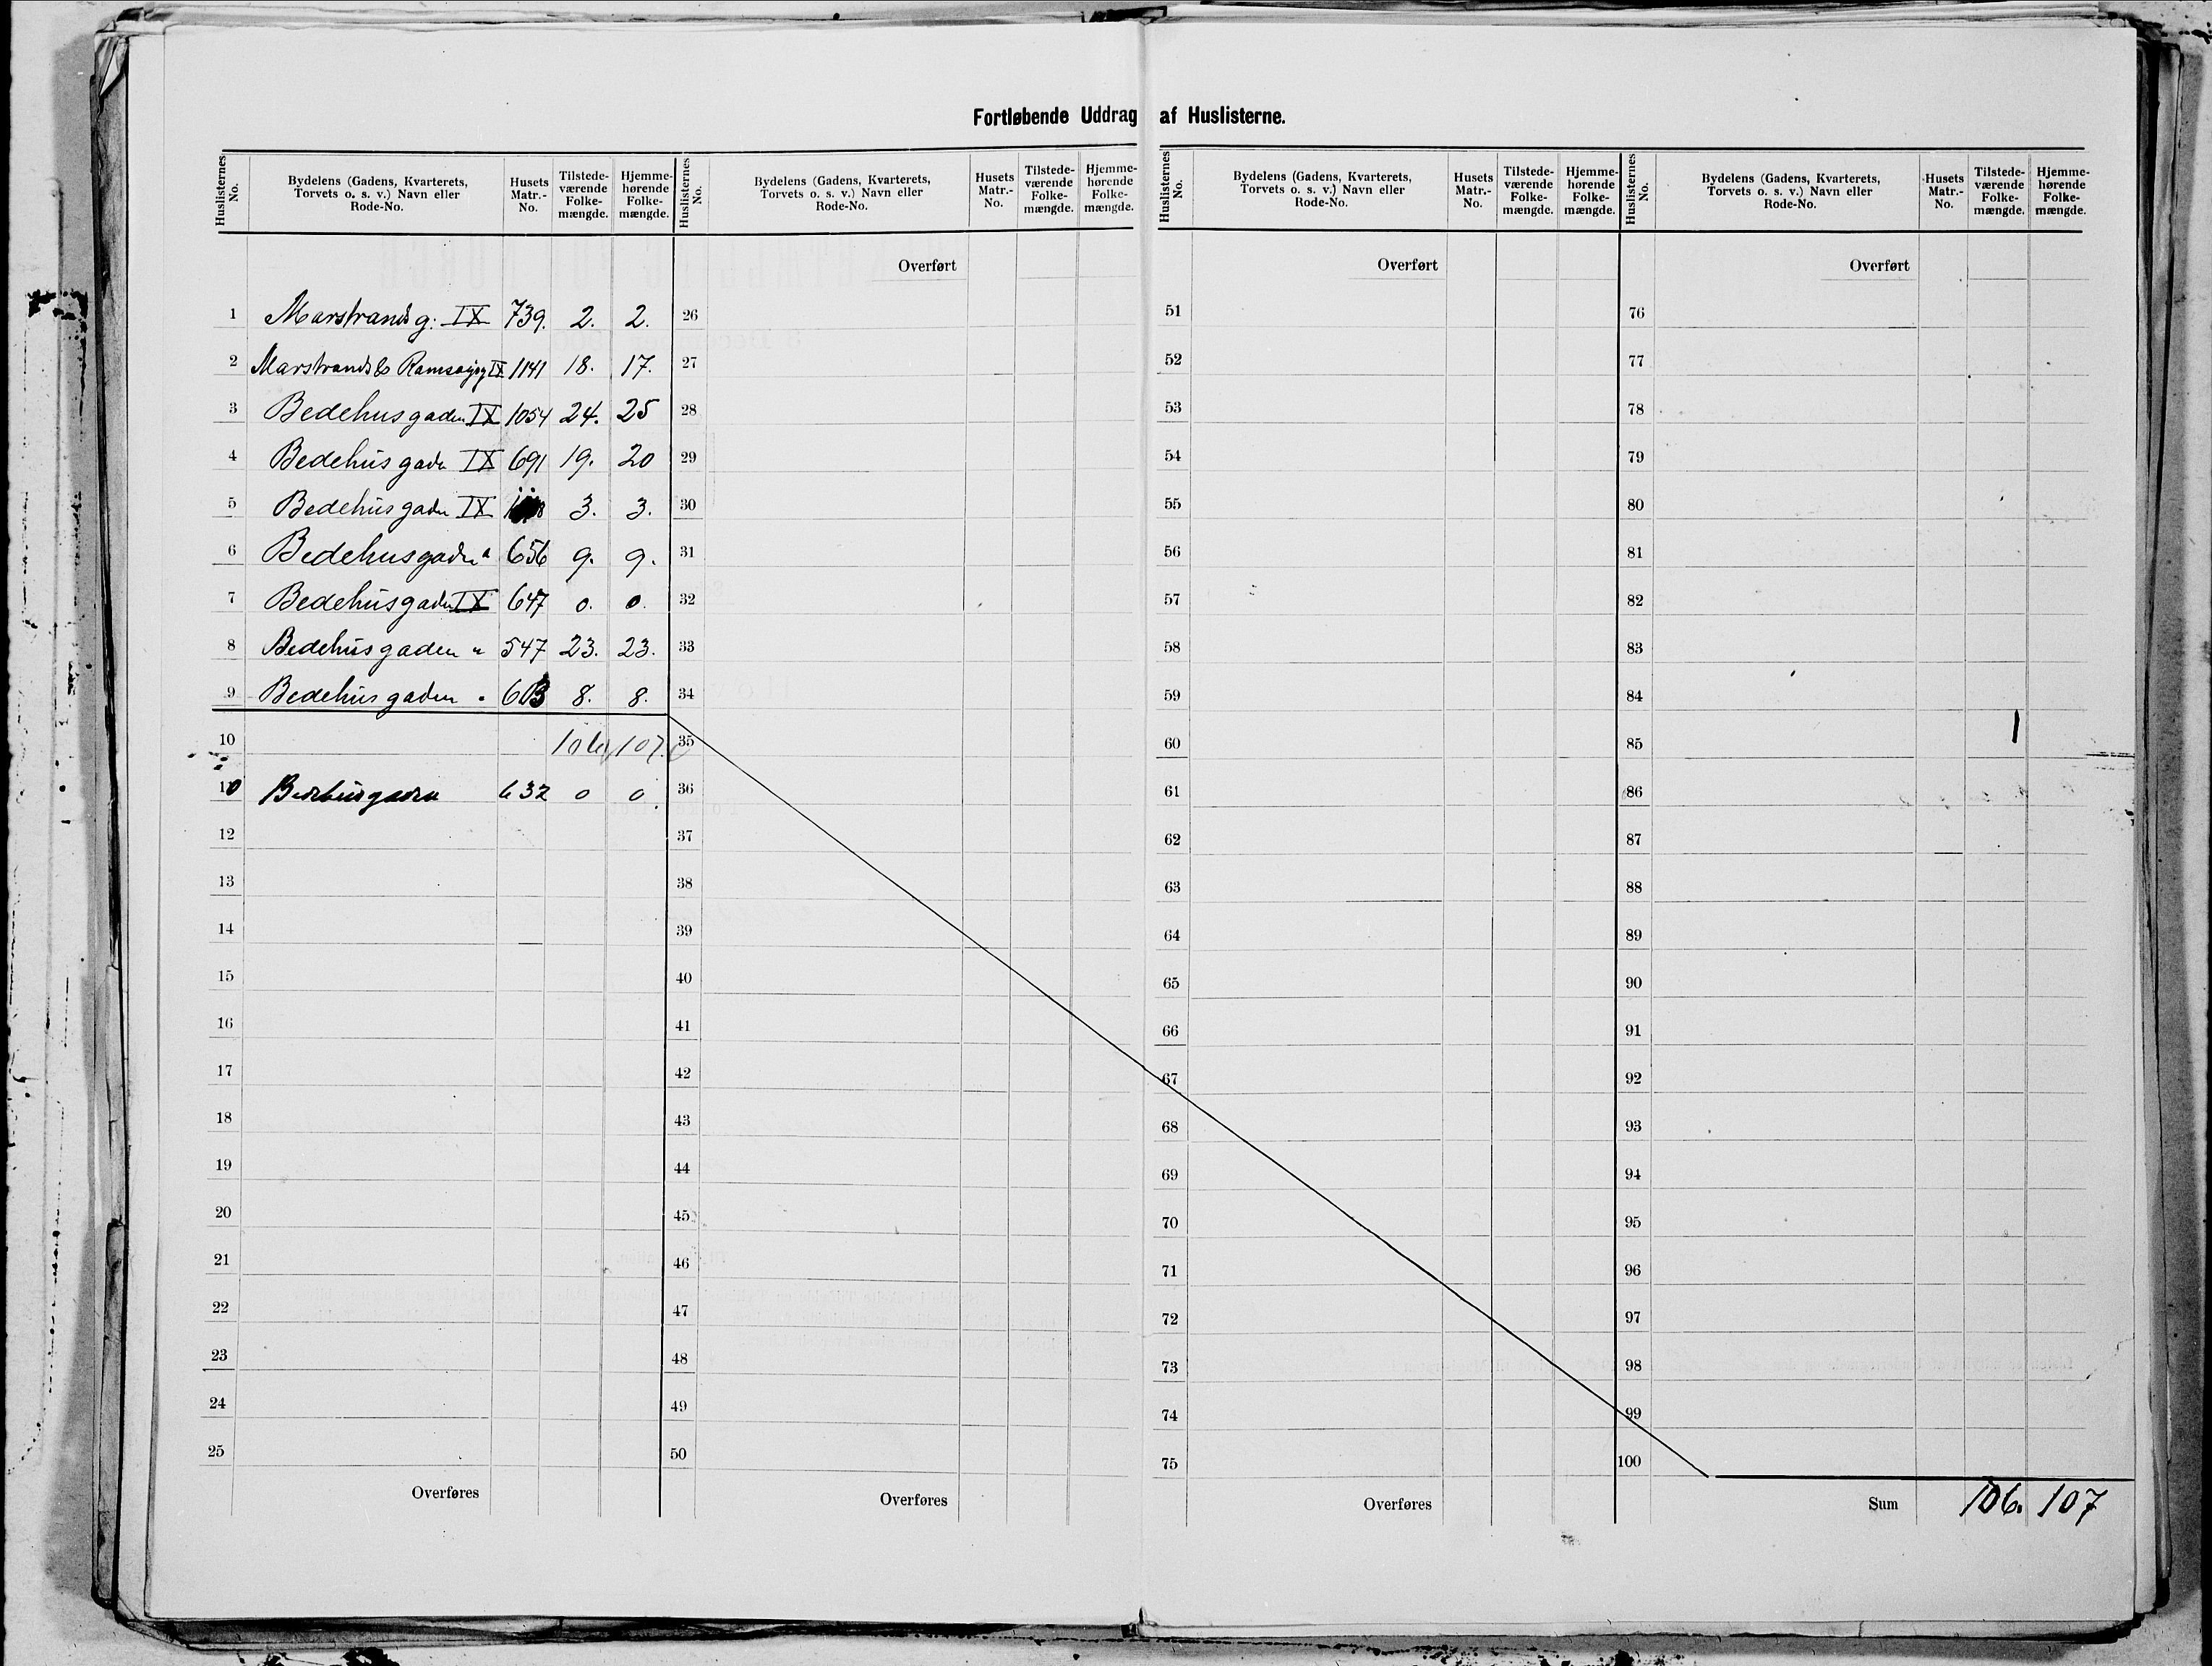 Fortløbende Uddrag af Huslisterne.
Huslisternes No. Bydelens (Gadens, Kvarterets, Torvets o. s. v.) Navn eller Rode-No. Husets Matr.-No. Tilstede-værende Folke-mængde. Hjemme-hørende Folke-mængde.
Huslisternes No. Bydelens (Gadens, Kvarterets, Torvets o. s. v.) Navn eller Rode-No. Husets Matr.-No. Tilstede-værende Folke-mængde. Hjemme-hørende Folke-mængde.
Huslisternes No. Bydelens (Gadens, Kvarterets, Torvets o. s. v.) Navn eller Rode-No. Husets Matr.-No. Tilstede-værende Folke-mængde. Hjemme-hørende Folke-mængde.
Huslisternes No. Bydelens (Gadens, Kvarterets, Torvets o. s. v.) Navn eller Rode-No. Husets Matr.-No. Tilstede-værende Folke-mængde. Hjemme-hørende Folke-mængde.
Overført Overført Overført
1 Marstrands g. IX 739. 2. 2. 26 51 76
2 Marstrands & IX 1141 18. 17. 27 52 77
3 Bedehusgaden IX 1054 24. 25 28 53 78
4 Bedehusgaden IX 691 19. 20 29 54 79
5 Bedehusgaden IX 3. 3. 30 55 80
6 Bedehusgaden " 656 9. 9. 31 56 81
7 Bedehusgaden IX 647 0. 0. 32 57 82
8 Bedehusgaden " 547 23. 23. 33 58 83
9 Bedehusgaden " 603 8. 8. 34 59 84
10 106 107. 35 60 85
10 Bedehusgaden 632 0 0. 36 61 86
12 37 62 87
13 38 63 88
14 39 64 89
15 40 65 90
16 41 66 91
17 42 67 92
18 43 68 93
19 44 69 94
20 45 70 95
21 46 71 96
22 47 72 97
23 48 73 98
24 49 74 99
25 50 75 100
Overføres Overføres Overføres Sum 106. 107